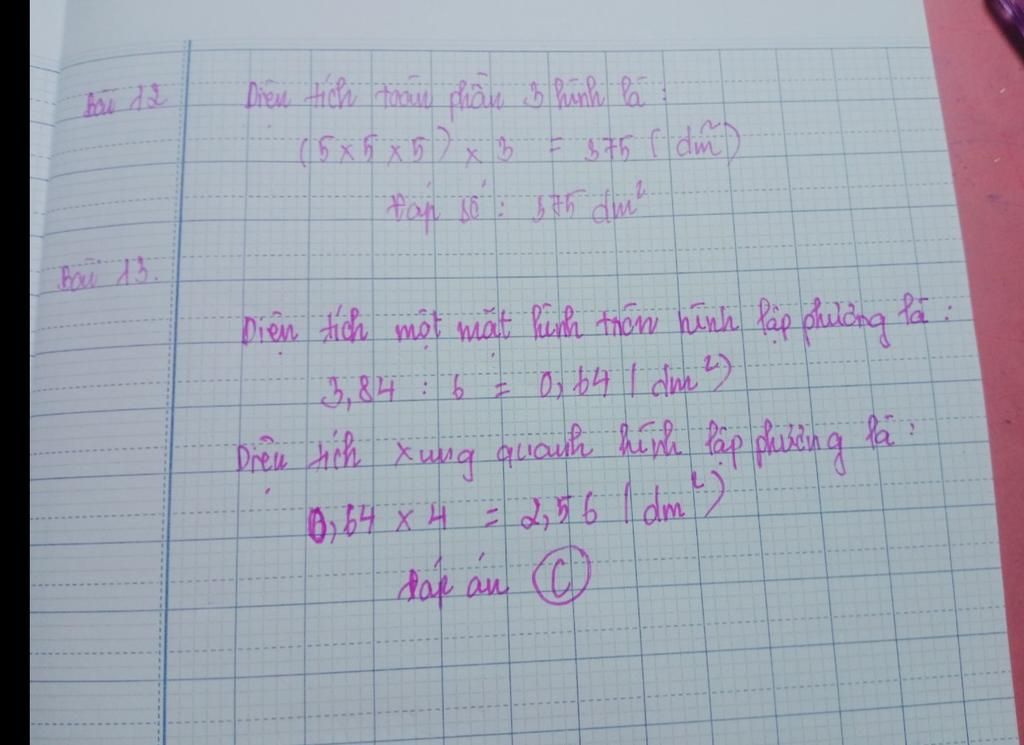 Bài 12
Diện tích toàn phần 3 hình là :
(5 × 5 × 5) × 3 = 375 (dm²)
Đáp số : 375 dm²
Bài 13.
Diện tích một mặt hình tròn hình lập phương là :
3,84 : 6 = 0,64 (dm²)
Diện tích xung quanh hình lập phương là :
0,64 × 4 = 2,56 (dm²)
Đáp án C